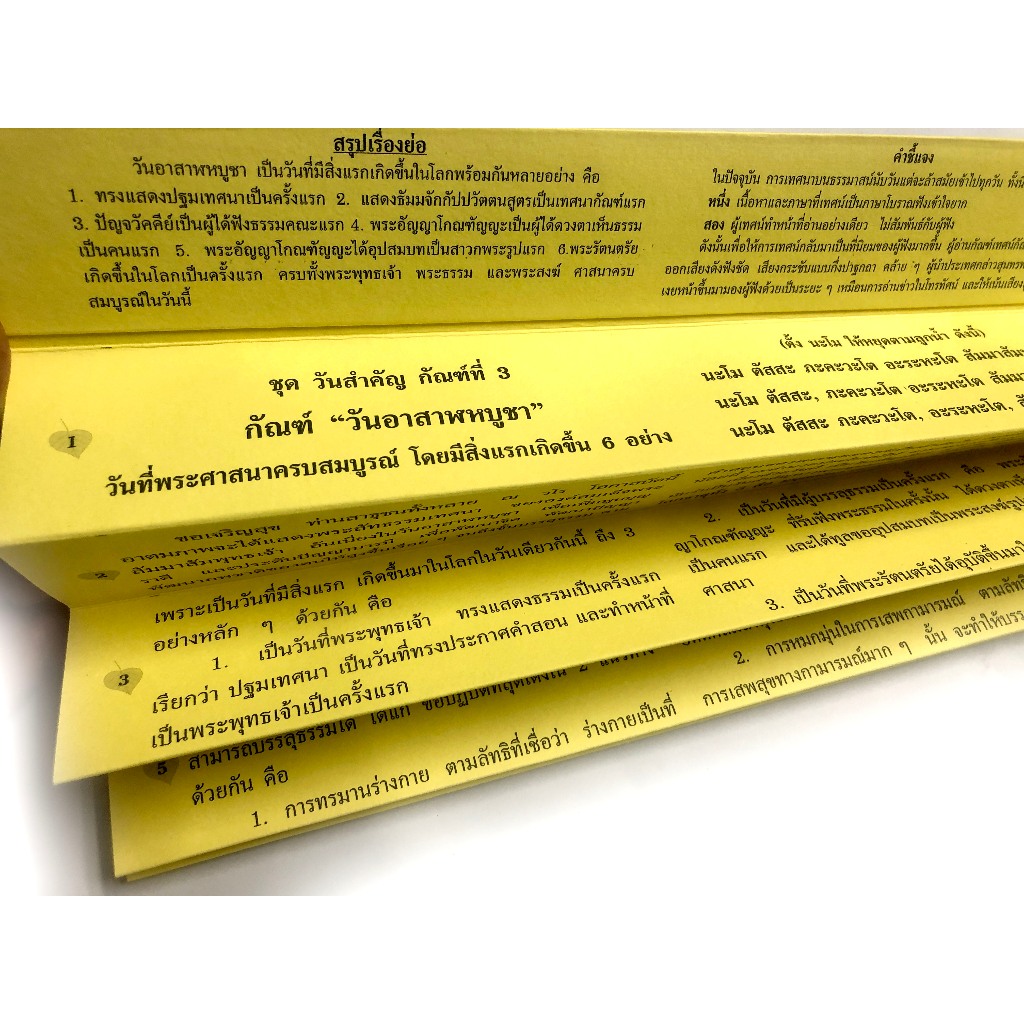 สรุปเรื่องย่อ
วันอาสาฬหบูชา เป็นวันที่มีสิ่งแรกเกิดขึ้นในโลกพร้อมกันหลายอย่าง คือ
1. ทรงแสดงปฐมเทศนาเป็นครั้งแรก 2. แสดงธัมมจักกัปปวัตตนสูตรเป็นเทศนากัณฑ์แรก
3. ปัญจวัคคีย์เป็นผู้ได้ฟังธรรมคณะแรก 4. พระอัญญาโกณฑัญญะเป็นผู้ได้ดวงตาเห็นธรรม
เป็นคนแรก 5. พระอัญญาโกณฑัญญะได้อุปสมบทเป็นสาวกพระรูปแรก 6.พระรัตนตรัย
เกิดขึ้นในโลกเป็นครั้งแรก ครบทั้งพระพุทธเจ้า พระธรรม และพระสงฆ์ ศาสนาครบ
สมบูรณ์ในวันนี้
คำชี้แจง
ในปัจจุบัน การเทศนาบนธรรมาสน์นับวันแต่จะล้าสมัยเข้าไปทุกวัน ทั้งนี้
หนึ่ง เนื้อหาและภาษาที่เทศน์เป็นภาษาโบราณฟังเข้าใจยาก
สอง ผู้เทศน์ทำหน้าที่อ่านอย่างเดียว ไม่สัมพันธ์กับผู้ฟัง
ดังนั้นเพื่อให้การเทศน์กลับมาเป็นที่นิยมของผู้ฟังมากขึ้น ผู้อ่านกัณฑ์เทศน์
ออกเสียงดังฟังชัด เสียงกระชับแบบกึ่งปาฐกถา คล้าย ๆ ผู้นำประเทศกล่าวสุนทร
เงยหน้าขึ้นมามองผู้ฟังด้วยเป็นระยะ ๆ เหมือนการอ่านข่าวในโทรทัศน์ และให้เน้นเสียง
1
ชุด วันสำคัญ กัณฑ์ที่ 3
กัณฑ์ “วันอาสาฬหบูชา”
วันที่พระศาสนาครบสมบูรณ์ โดยมีสิ่งแรกเกิดขึ้น 6 อย่าง
(ตั้ง นะโม ให้หยุดตามลูกน้ำ ดังนี้)
นะโม ตัสสะ ภะคะวะโต อะระหะโต สัมมาสัม
นะโม ตัสสะ, ภะคะวะโต อะระหะโต สัมมา
นะโม ตัสสะ ภะคะวะโต, อะระหะโต,
2
ขอเจริญสุข ท่านสาธุชนทั้งหลาย ณ
อาตมภาพจะได้แสดงพระสัทธรรมเทศนา
สัมมาสัมพุทธเจ้า อันเนื่องในวันอาสาฬหบูชา
3
เพราะเป็นวันที่มีสิ่งแรก เกิดขึ้นมาในโลกในวันเดียวกันนี้ ถึง 3
อย่างหลัก ๆ ด้วยกัน คือ
1. เป็นวันที่พระพุทธเจ้า ทรงแสดงธรรมเป็นครั้งแรก
เรียกว่า ปฐมเทศนา เป็นวันที่ทรงประกาศคำสอน และทำหน้าที่
เป็นพระพุทธเจ้าเป็นครั้งแรก
2. เป็นวันที่มีผู้บรรลุธรรมเป็นครั้งแรก คือ
ญาโกณฑัญญะ ที่รับฟังพระธรรมในครั้งนั้น ได้ดวงตา
เป็นคนแรก และได้ทูลขออุปสมบทเป็นพระสงฆ์
ศาสนา
3. เป็นวันที่พระรัตนตรัยได้อุบัติขึ้นมา
5
สามารถบรรลุธรรมได้ ได้แก่ ข้อปฏิบัติที่สุดโต่งใน 2 แนวทาง
ด้วยกัน คือ
1. การทรมานร่างกาย ตามลัทธิที่เชื่อว่า ร่างกายเป็นที่
2. การหมกมุ่นในการเสพกามารมณ์ ตามลัทธิ
การเสพสุขทางกามารมณ์มาก ๆ นั้น จะทำให้บรร